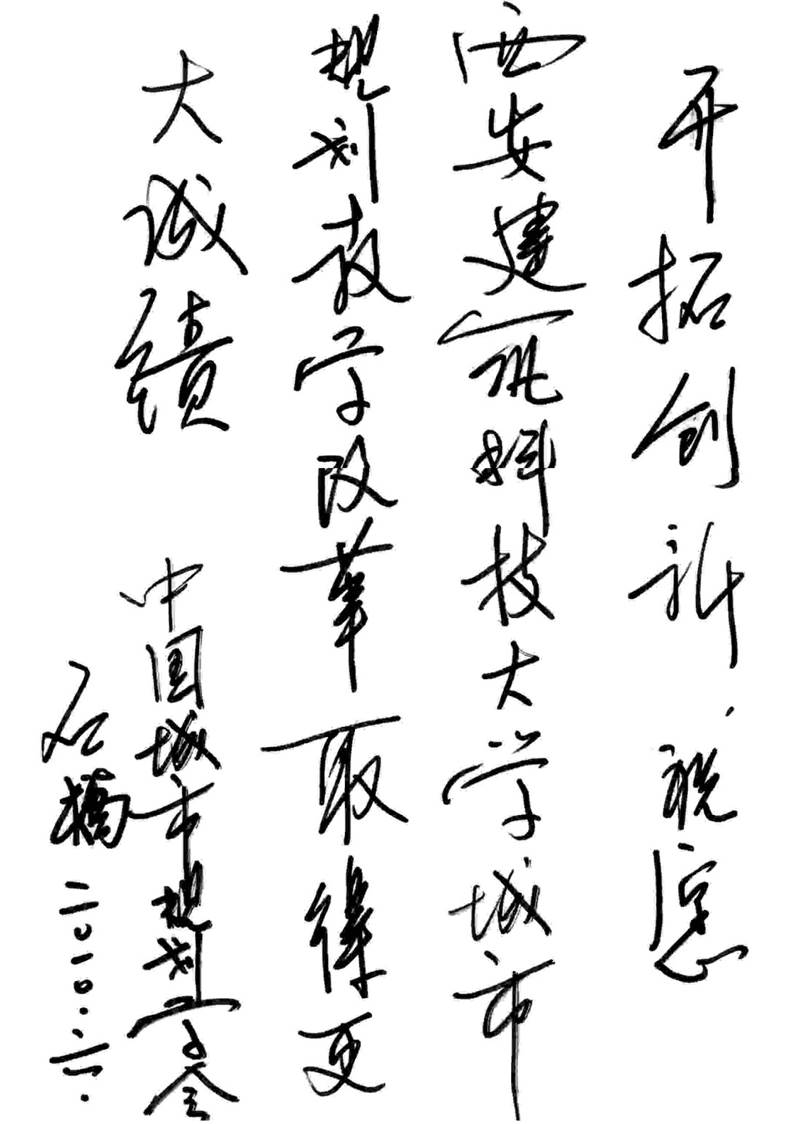 开拓创新，祝愿
西安建筑科技大学城市
规划教学改革取得更
大成绩
中国城市规划学会
石楠 二〇一〇.六.